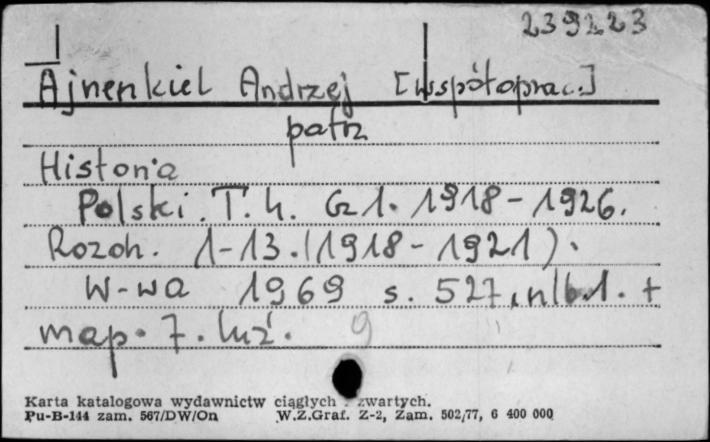 239223
Ajnenkiel Andrzej [współoprac.]
patrz
Historia
Polski. T. 4. Cz 1. 1918-1926.
Rozdz. 1-13. (1918-1921).
W-wa 1969 s. 527, nlb. 1. +
map. 7. luź. 9
Karta katalogowa wydawnictw ciągłych i zwartych.
Pu-B-144 zam. 567/DW/On W.Z.Graf. Z-2, Zam. 502/77, 6 400 000